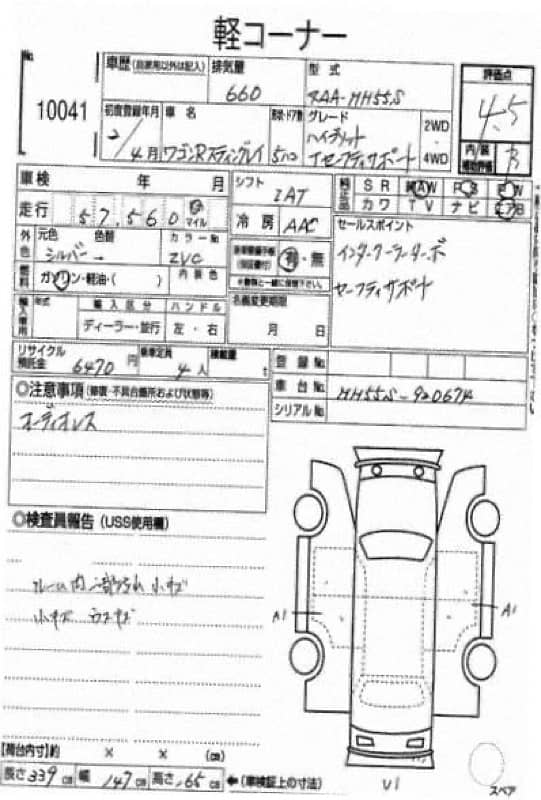 軽コーナー
No. 10041
車歴 (自家用以外は記入) 排気量 660 型式 4AA-MH55S
評価点 4.5
初度登録年月 2/4月 車名 ワゴンRスティングレイ 形状・ドア数 5ドア グレード ハイブリット Tセーフティサポート 2WD・4WD
内装補助評価 B
車検 年 月 シフト IAT
SR AW PS PW
カワ TV ナビ エアB
走行 57,560 km マイル 冷房 AAC
セールスポイント
インタークーラーターボ
セーフティサポート
外色 元色 シルバー→ 色替 カラーNo. ZVC
燃料 ガソリン・軽油・( ) 内装色
有・無
(保証書付) ※車検証と一緒に保管下さい。
輸入車用 年式 輸入区分 ハンドル 名義変更期限
ディーラー・並行 左・右 月 日
リサイクル預託金 6470円 乗車定員 4人 積載量 t
登録No.
車台No. MH55S-920674
シリアルNo.
◎注意事項 (修復・不具合箇所および状態等)
オーディオレス
◎検査員報告 (USS使用欄)
ルーム内一部汚れ 小キズ
小キズ ウスキズ
A1 A1
【荷台内寸】約 × × (cm)
長さ 339 cm 幅 147 cm 高さ 165 cm ←(車検証上の寸法)
U1
スペア